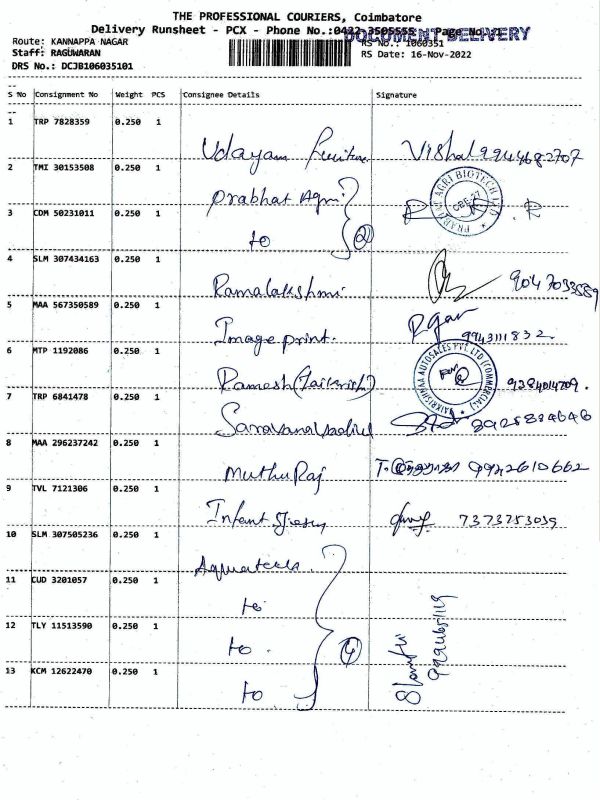 THE PROFESSIONAL COURIERS, Coimbatore
Delivery Runsheet - PCX - Phone No.:0422-3505555 Page No.:1
DOCUMENT DELIVERY
Route: KANNAPPA NAGAR
RS No.: 1060351
Staff: RAGUWARAN
RS Date: 16-Nov-2022
DRS No.: DCJB106035101
S No Consignment No Weight PCS Consignee Details Signature
1 TRP 7828359 0.250 1 Udayam Furniture Vishal 9944682707
2 TMI 30153508 0.250 1 Prabhat Agri
3 CDM 50231011 0.250 1 to 2
4 SLM 307434163 0.250 1 Ramalakshmi
5 MAA 567350589 0.250 1 Image print. 9943111832.
6 MTP 1192086 0.250 1 Ramesh (Jaikrish) 9284014709.
7 TRP 6841478 0.250 1 Saravana
8 MAA 296237242 0.250 1 Muthu Raj 9942610662
9 TVL 7121306 0.250 1 Infant Jesus 7373753039
10 SLM 307505236 0.250 1
11 CUD 3201057 0.250 1 to
12 TLY 11513590 0.250 1 to 4
13 KCM 12622470 0.250 1 to